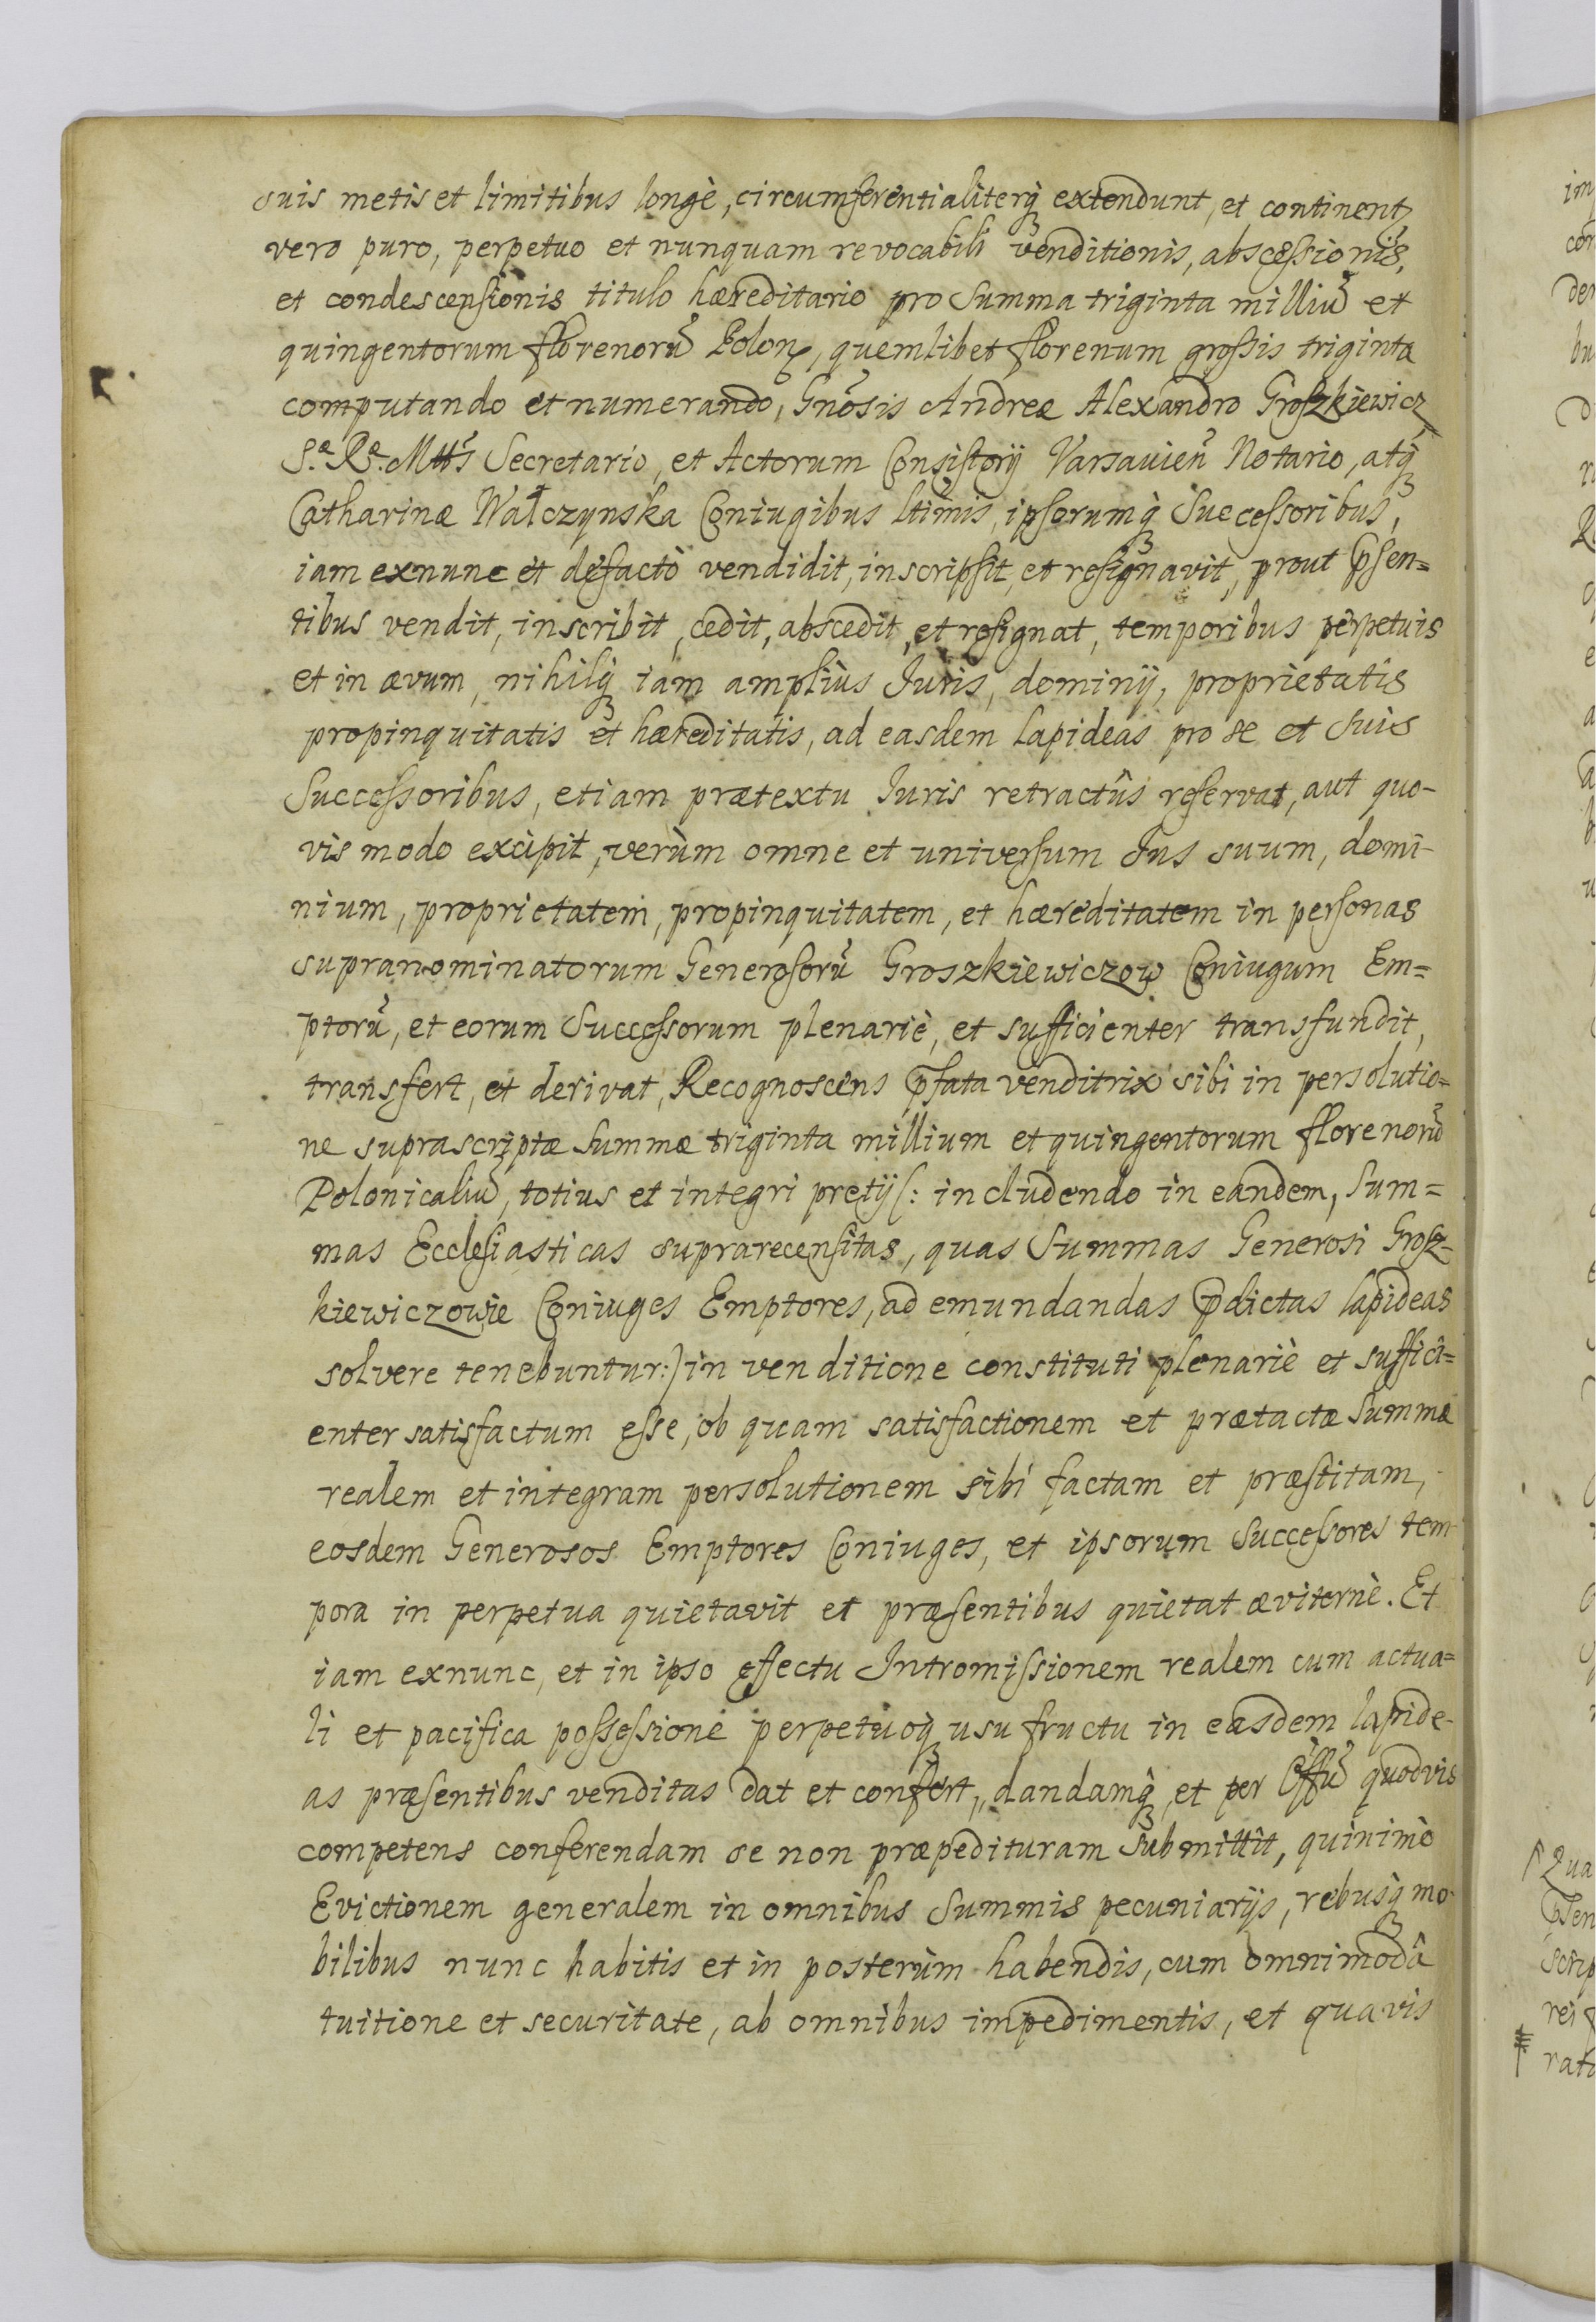 suis metis et limitibus longè, circumferentialiterq́ʒ extendunt, et continent,
vero puro, perpetuo et nunquam revocabili venditionis, abscessionis,
et condescensionis titulo hæreditario pro Summa triginta milliũ et
quingentorum florenorũ Polon, quemlibet florenum grossis triginta
computando et numerando, Gnõsis Andreæ Alexandro Groszkiewicz
S.æ R.æ Mttis Secretario, et Actorum Consistorij Varsavień Notario, atq́ʒ
Catharinæ Wałczynska Coniugibus ltimis, ipsorumq́ʒ Successoribus,
iam exnunc et defactò vendidit, inscripsit, et resignavit, prout p̃sen=
tibus vendit, inscribit, cedit, abscedit, et resignat, temporibus perpetuis
et in ævum, nihilq́ʒ iam ampliùs Iuris, dominij, proprietatis
propinquitatis et hæreditatis, ad easdem Lapideas pro se et Suis
Successoribus, etiam prætextu Iuris retractûs reservat, aut quo-
vis modo excipit, verùm omne et universum Ius suum, domi-
nium, proprietatem, propinquitatem, et hæreditatem in personas
supranominatorum Generosorũ Groszkiewiczow Coniugum Em=
ptorũ, et eorum Successorum plenariè, et sufficienter transfundit,
transfert, et derivat, Recognoscens p̃fata venditrix sibi in persolutio=
ne suprascriptæ Summæ triginta millium et quingentorum florenorũ
Polonicaliũ, totius et integri pretij (: includendo in eandem, Sum=
mas Ecclesiasticas suprarecensitas, quas Summas Generosi Grosz-
kiewiczowie Coniuges Emptores, ad emundandas p̃dictas lapideas
solvere tenebuntur :) in venditione constituti plenariè et suffici=
enter satisfactum esse, ob quam satisfactionem et prætactæ Summæ
realem et integram persolutionem sibi factam et præstitam,
eosdem Generosos Emptores Coniuges, et ipsorum Successores tem
pora in perpetua quietavit et præsentibus quietat æviternè. Et
iam exnunc, et in ipso effectu Intromissionem realem cum actua=
li et pacifica possessione perpetuoq́ʒ usu fructu in easdem lapide-
as præsentibus venditas dat et confert, dandamq́ʒ, et per Offũ quodvis
competens conferendam se non præpedituram submittit, quinimò
Evictionem generalem in omnibus Summis pecuniarijs, rebusq́ʒ mo-
bilibus nunc habitis et in posterùm habendis, cum omnimodâ
tuitione et securitate, ab omnibus impedimentis, et quavis